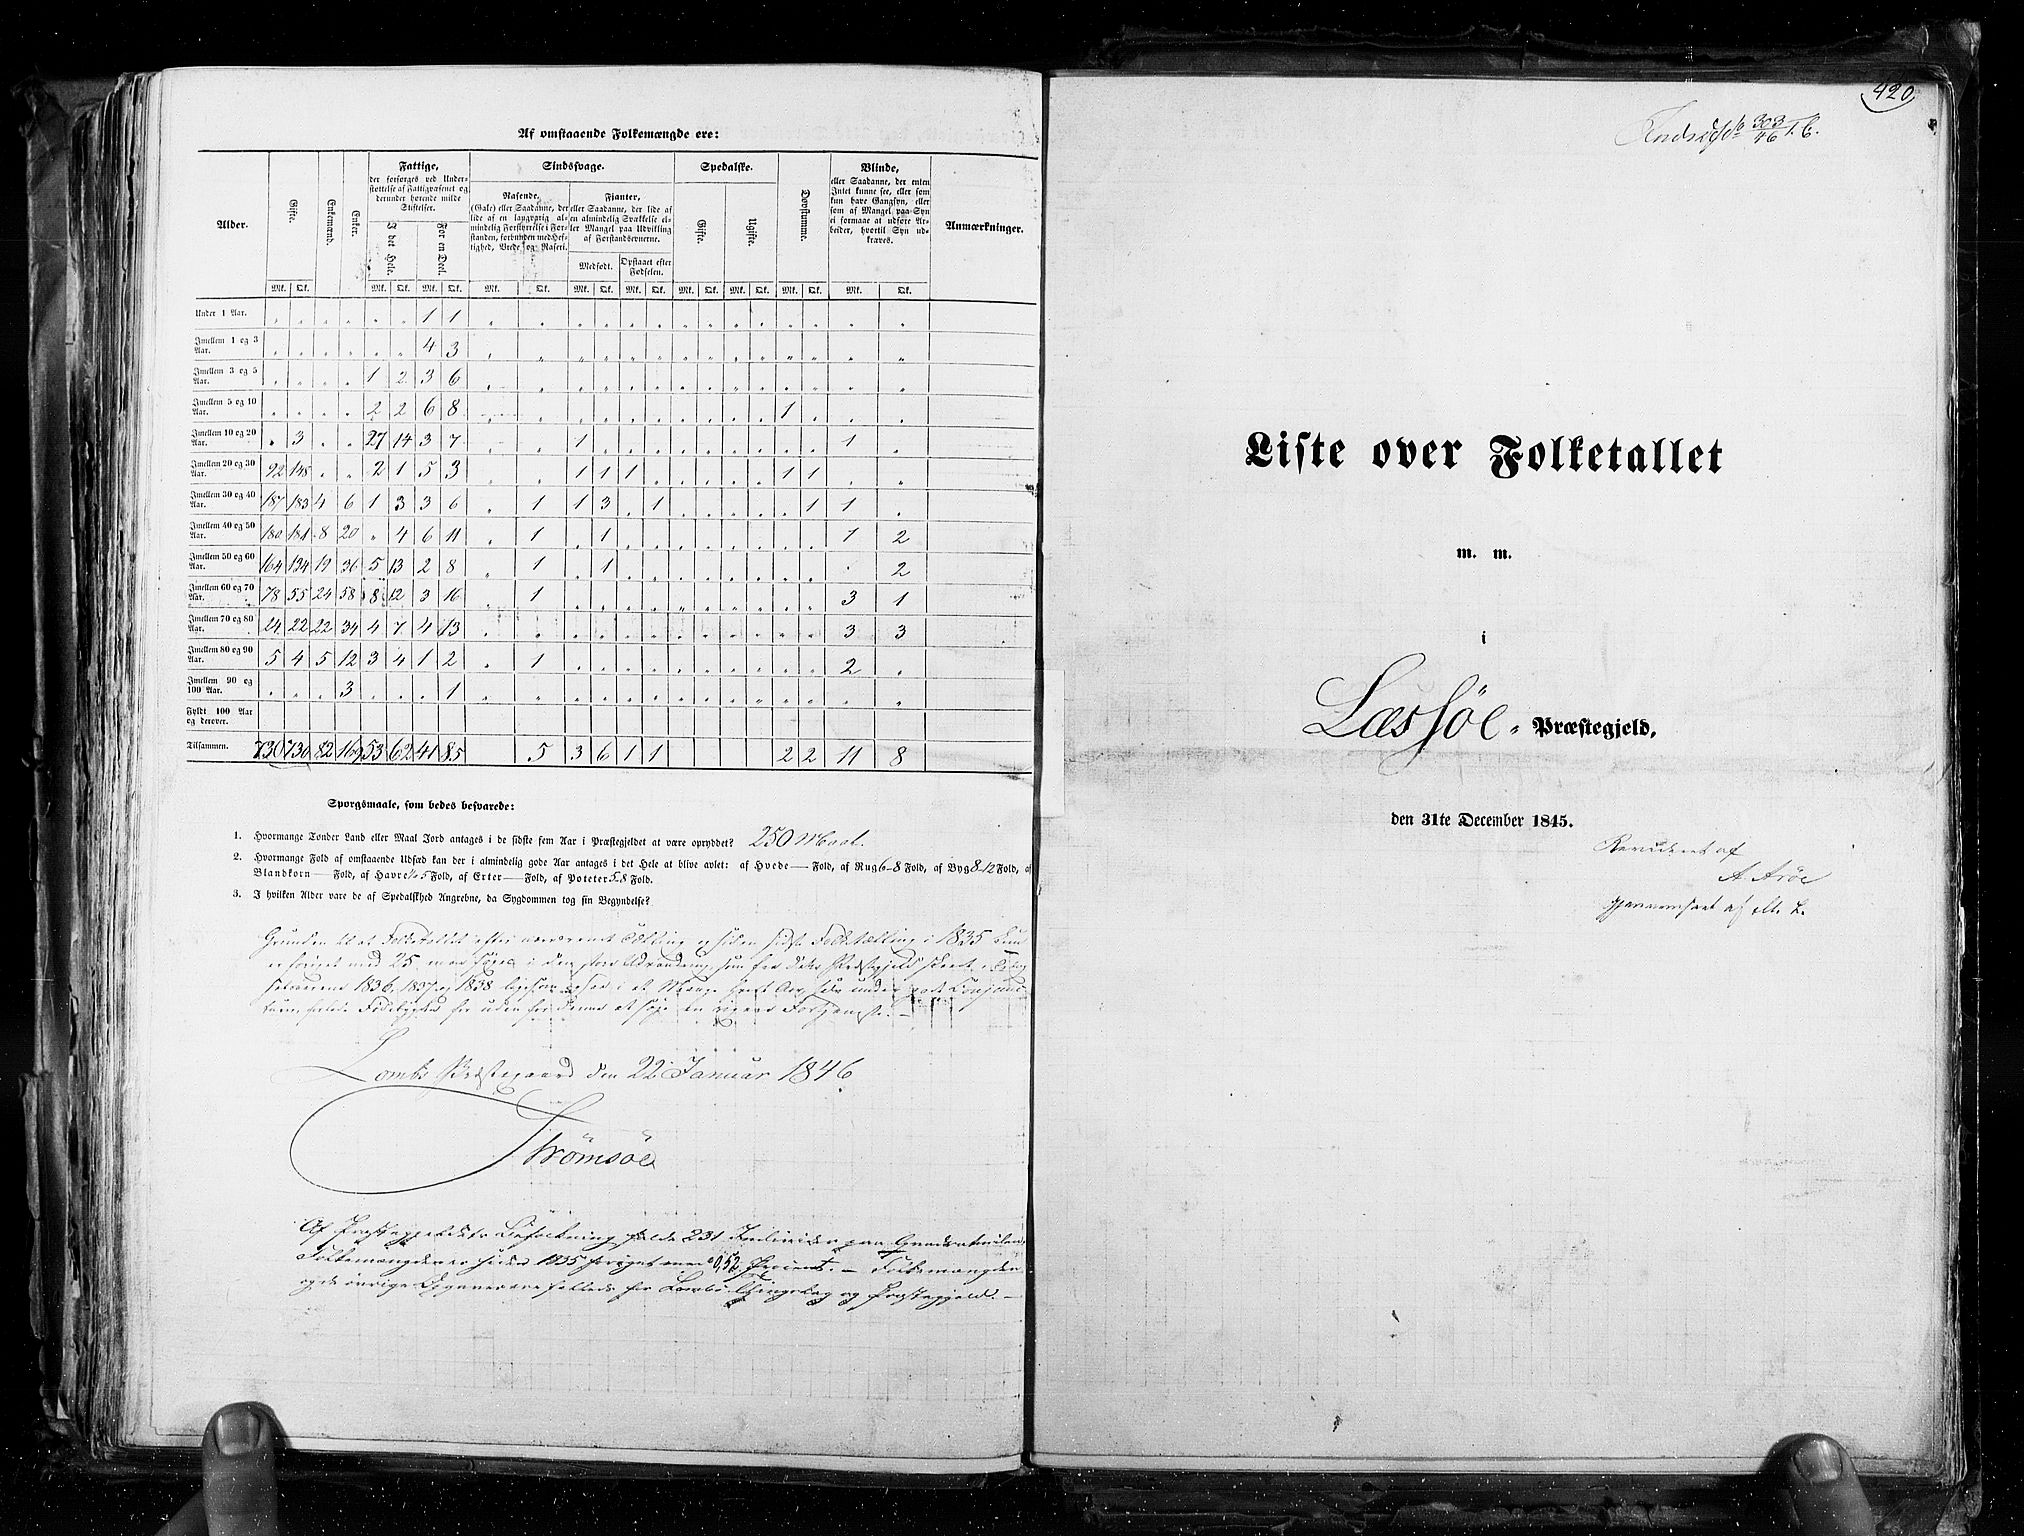 Af omstaaende Folkemængde ere:
Alder. | Gifte. | Enkemænd. | Enker. | Fattige, der forsørges ved Understøttelse af Fattigvæsenet og derunder hørende milde Stiftelser. | Sindssvage. | Spedalske. | Døvstumme. | Blinde, eller Saadanne, der enten Intet kunne see, eller som kun have Gangsyn, eller som af Mangel paa Syn ei formaae at udføre Arbeider, hvortil Syn udkræves. | Anmærkninger.
I det Hele. | For en Deel. | Rasende, (Gale) eller Saadanne, der lide af en langvarig almindelig Forstyrrelse i Forstanden, forbunden med Heftighed, Vrede og Raseri. | Fjanter, eller Saadanne, der lide af en almindelig Svækkelse eller Mangel paa Udvikling af Forstandsevnerne. | Gifte. | Ugifte.
Medfødt. | Opstaaet efter Fødselen.
Mk. Qk. Mk. Qk. Mk. Qk. Mk. Qk. Mk. Qk. Mk. Qk. Mk. Qk. Mk. Qk. Mk. Qk. Mk. Qk.
Under 1 Aar. " " " " " " 1 1 " " " " " " " " " " " " " "
Imellem 1 og 3 Aar. " " " " " " 4 3 " " " " " " " " " " " " " "
Imellem 3 og 5 Aar. " " " " 1 2 3 6 " " " " " " " " " " " " " "
Imellem 5 og 10 Aar. " " " " 2 2 6 8 " " " " " " " " " " 1 " " "
Imellem 10 og 20 Aar. " 3 " " 27 14 3 7 " " 1 " " " " " " " " " 1 "
Imellem 20 og 30 Aar. 92 148 " " 2 1 5 3 " " 1 1 1 " " " " " 1 1 " "
Imellem 30 og 40 Aar. 187 183 4 6 1 3 3 6 " 1 1 3 " 1 " " " " " 1 1 "
Imellem 40 og 50 Aar. 180 181 8 20 " 4 6 11 " 1 " 1 " " " " " " " " 1 2
Imellem 50 og 60 Aar. 164 134 19 36 5 13 2 8 " 1 " 1 " " " " " " " " " 2
Imellem 60 og 70 Aar. 78 55 24 58 8 12 3 16 " 1 " " " " " " " " " " 3 1
Imellem 70 og 80 Aar. 24 22 22 34 4 7 4 13 " " " " " " " " " " " " 3 3
Imellem 80 og 90 Aar. 5 4 5 12 3 4 1 2 " 1 " " " " " " " " " " 2 "
Imellem 90 og 100 Aar. " " " 3 " " " 1 " " " " " " " " " " " " " "
Fyldt 100 Aar og derover.
Tilsammen. 730 730 82 169 53 62 41 85 5 3 6 1 1 2 2 11 8
Spørgsmaale, som bedes besvarede:
1. Hvormange Tønder Land eller Maal Jord antages i de sidste fem Aar i Præstegjeldet at være opryddet? 250 Maal.
2. Hvormange Fold af omstaaende Udsæd kan der i almindelig gode Aar antages i det Hele at blive avlet: af Hvede — Fold, af Rug 6-8 Fold, af Byg 8-12 Fold, af
Blandkorn — Fold, af Havre 5 Fold, af Erter — Fold, af Poteter 5-8 Fold.
3. I hvilken Alder vare de af Spedalskhed Angrebne, da Sygdommen tog sin Begyndelse?
Grunden til at Folketallet efter nærværende Tælling og siden sidste Folketælling i 1835 kun
er forøget med 25, maa søges i den store Udvandring, som fra dette Præstegjeld skeede i
1836, 1837 og 1838
Lomb Præstegaard den 22 Januar 1846.
Strømsøe
Af Præstegjeldets Befolkning falde 231 Individer paa Quadratmilen.
Folkemængden er siden 1835 forøget med 0,52 Procent. — Folkemængden
og de øvrige Opgaver ere fælleds for Lombs Thinglag og Præstegjeld. —
420
303/46 T. C.
Liste over Folketallet
m. m.
i
Læssøe Præstegjeld,
den 31te December 1845.
Revideret af
A Arøe
gjennemseet af